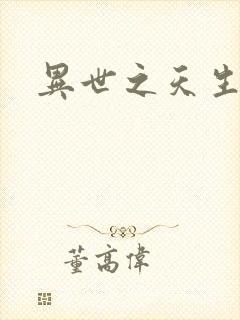 異世之天生
董高偉